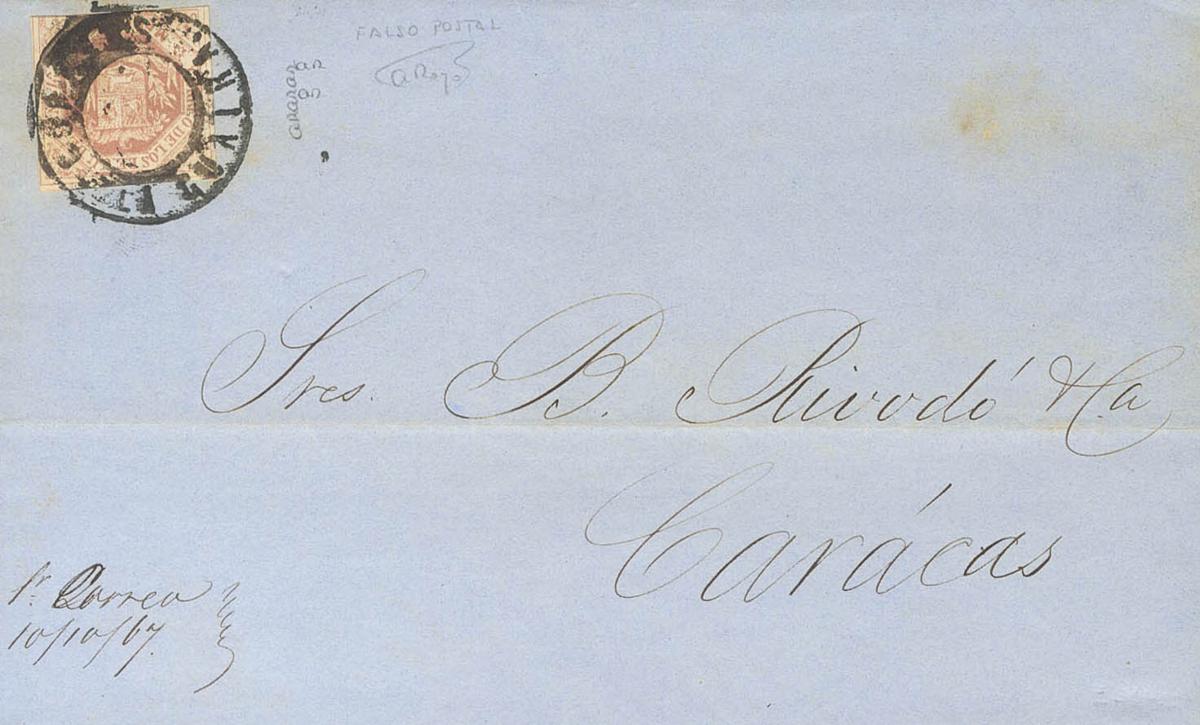 FALSO POSTAL
a Royo
DE LOS
Sres. B. Rivodó & Ca
Carácas
Pr. Correo
10/10/67.